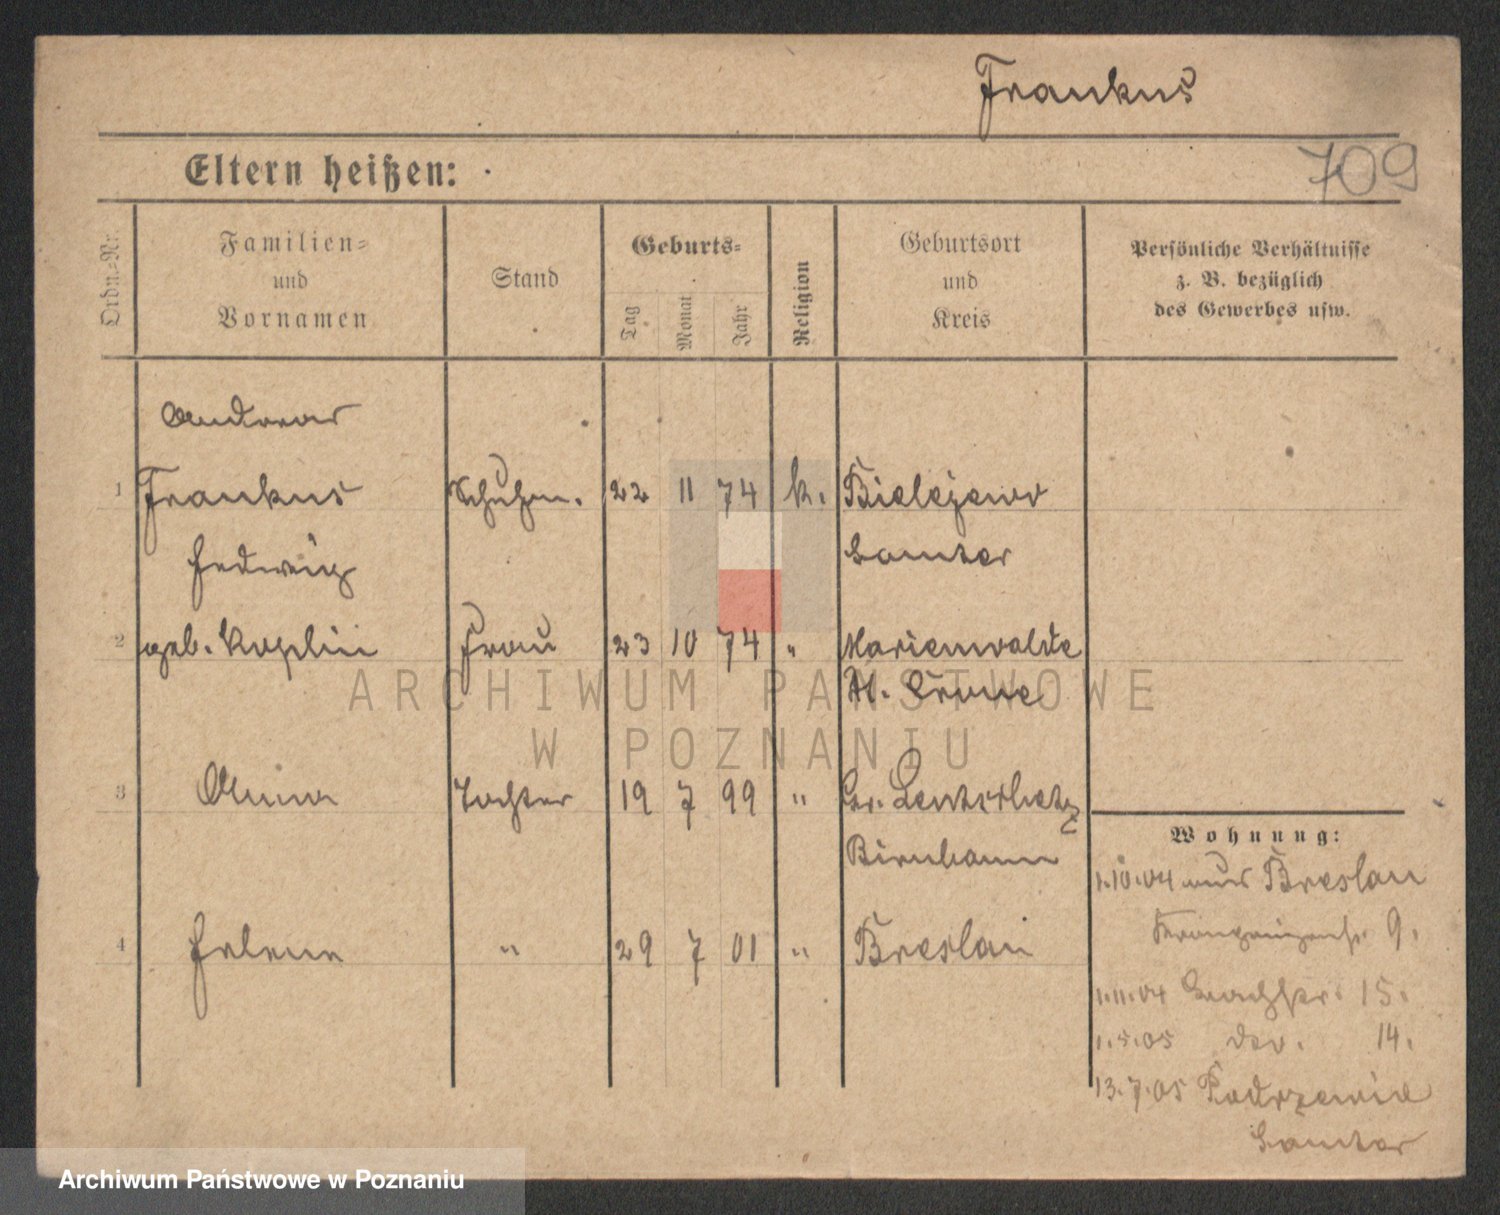 Frankus
709
Eltern heißen:
Ordn.-Nr.
Familien-
und
Vornamen
Stand
Geburts-
Tag
Monat
Jahr
Religion
Geburtsort
und
Kreis
Persönliche Verhältnisse
z. B. bezüglich
des Gewerbes usw.
Andreas
1 Frankus Schuhm. 22 11 74 k. Bielejewo
Hedwig Samter
2 geb. Koplin Frau 23 10 74 " Marienwalde
Crone
3 Anna Tochter 19 7 99 " Gr.
Birnbaum
4 Helene " 29 7 01 " Breslau
Wohnung:
1.10.04 aus Breslau
9.
1.11.04 15.
1.5.05 14.
13.7.05 Podrzewie
Samter
ARCHIWUM PAŃSTWOWE
W POZNANIU
Archiwum Państwowe w Poznaniu